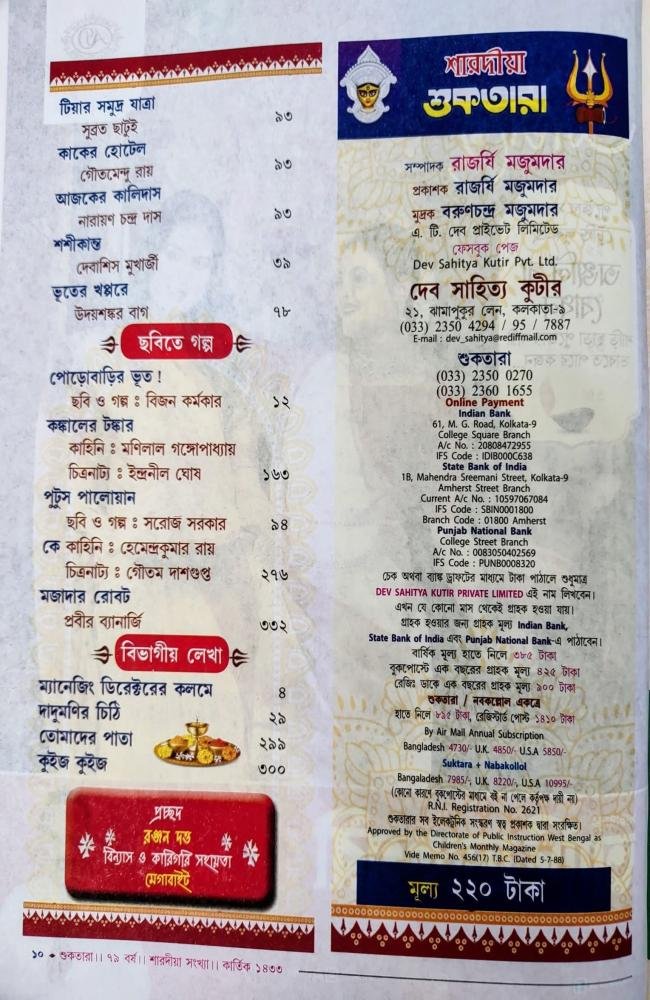 টিয়ার সমুদ্র যাত্রা
সুব্রত ছাটুই ৯৩
কাকের হোটেল
গৌতমেন্দু রায় ৯৩
আজকের কালিদাস
নারায়ণ চন্দ্র দাস ৯৩
শশীকান্ত
দেবাশিস মুখার্জী ৩৯
ভূতের খপ্পরে
উদয়শঙ্কর বাগ ৭৮
ছবিতে গল্প
পোড়োবাড়ির ভূত !
ছবি ও গল্প : বিজন কর্মকার ১২
কঙ্কালের টঙ্কার
কাহিনি : মণিলাল গঙ্গোপাধ্যায়
চিত্রনাট্য : ইন্দ্রনীল ঘোষ ১৬৩
পুটুস পালোয়ান
ছবি ও গল্প : সরোজ সরকার ৯৪
কে কাহিনি : হেমেন্দ্রকুমার রায়
চিত্রনাট্য : গৌতম দাশগুপ্ত ২৭৬
মজাদার রোবট
প্রবীর ব্যানার্জি ৩৩২
বিভাগীয় লেখা
ম্যানেজিং ডিরেক্টরের কলমে ৪
দাদুমণির চিঠি ২৯
তোমাদের পাতা ২৯৯
কুইজ কুইজ ৩০০
প্রচ্ছদ
রঞ্জন দত্ত
বিন্যাস ও কারিগরি সহায়তা
মেগাবাইট
১০ ◆ শুকতারা।। ৭৯ বর্ষ।। শারদীয়া সংখ্যা।। কার্তিক ১৪৩৩
শারদীয়া
শুকতারা
সম্পাদক রাজর্ষি মজুমদার
প্রকাশক রাজর্ষি মজুমদার
মুদ্রক বরুণচন্দ্র মজুমদার
এ. টি. দেব প্রাইভেট লিমিটেড
ফেসবুক পেজ
Dev Sahitya Kutir Pvt. Ltd.
দেব সাহিত্য কুটীর
২১, ঝামাপুকুর লেন, কলকাতা-৯
(033) 2350 4294 / 95 / 7887
E-mail : dev_sahitya@rediffmail.com
শুকতারা
(033) 2350 0270
(033) 2360 1655
Online Payment
Indian Bank
61, M. G. Road, Kolkata-9
College Square Branch
A/c No. : 20808472955
IFS Code : IDIB000C638
State Bank of India
1B, Mahendra Sreemani Street, Kolkata-9
Amherst Street Branch
Current A/c No. : 10597067084
IFS Code : SBIN0001800
Branch Code : 01800 Amherst
Punjab National Bank
College Street Branch
A/c No. : 0083050402569
IFS Code : PUNB0008320
চেক অথবা ব্যাঙ্ক ড্রাফটের মাধ্যমে টাকা পাঠালে শুধুমাত্র
DEV SAHITYA KUTIR PRIVATE LIMITED এই নাম লিখবেন।
এখন যে কোনো মাস থেকেই গ্রাহক হওয়া যায়।
গ্রাহক হওয়ার জন্য গ্রাহক মূল্য Indian Bank,
State Bank of India এবং Punjab National Bank-এ পাঠাবেন।
বার্ষিক মূল্য হাতে নিলে ৩৮৫ টাকা
বুকপোস্টে এক বছরের গ্রাহক মূল্য ৪২৫ টাকা
রেজিঃ ডাকে এক বছরের গ্রাহক মূল্য ৯০০ টাকা
শুকতারা / নবকল্লোল একত্রে
হাতে নিলে ৮৯৫ টাকা, রেজিস্টার্ড পোস্ট ১৪১০ টাকা
By Air Mail Annual Subscription
Bangladesh 4730/- U.K. 4850/- U.S.A 5850/-
Suktara + Nabakollol
Bangaladesh 7985/-, U.K. 8220/-, U.S.A 10995/-
(কোনো কারণে বুকপোস্টের মাধ্যমে বই না পেলে কর্তৃপক্ষ দায়ী নয়)
R.N.I. Registration No. 2621
শুকতারার সব ইলেকট্রনিক সংস্করণ স্বত্ব প্রকাশক দ্বারা সংরক্ষিত।
Approved by the Directorate of Public Instruction West Bengal as
Children's Monthly Magazine
Vide Memo No. 456(17) T.B.C. (Dated 5-7-88)
মূল্য ২২০ টাকা